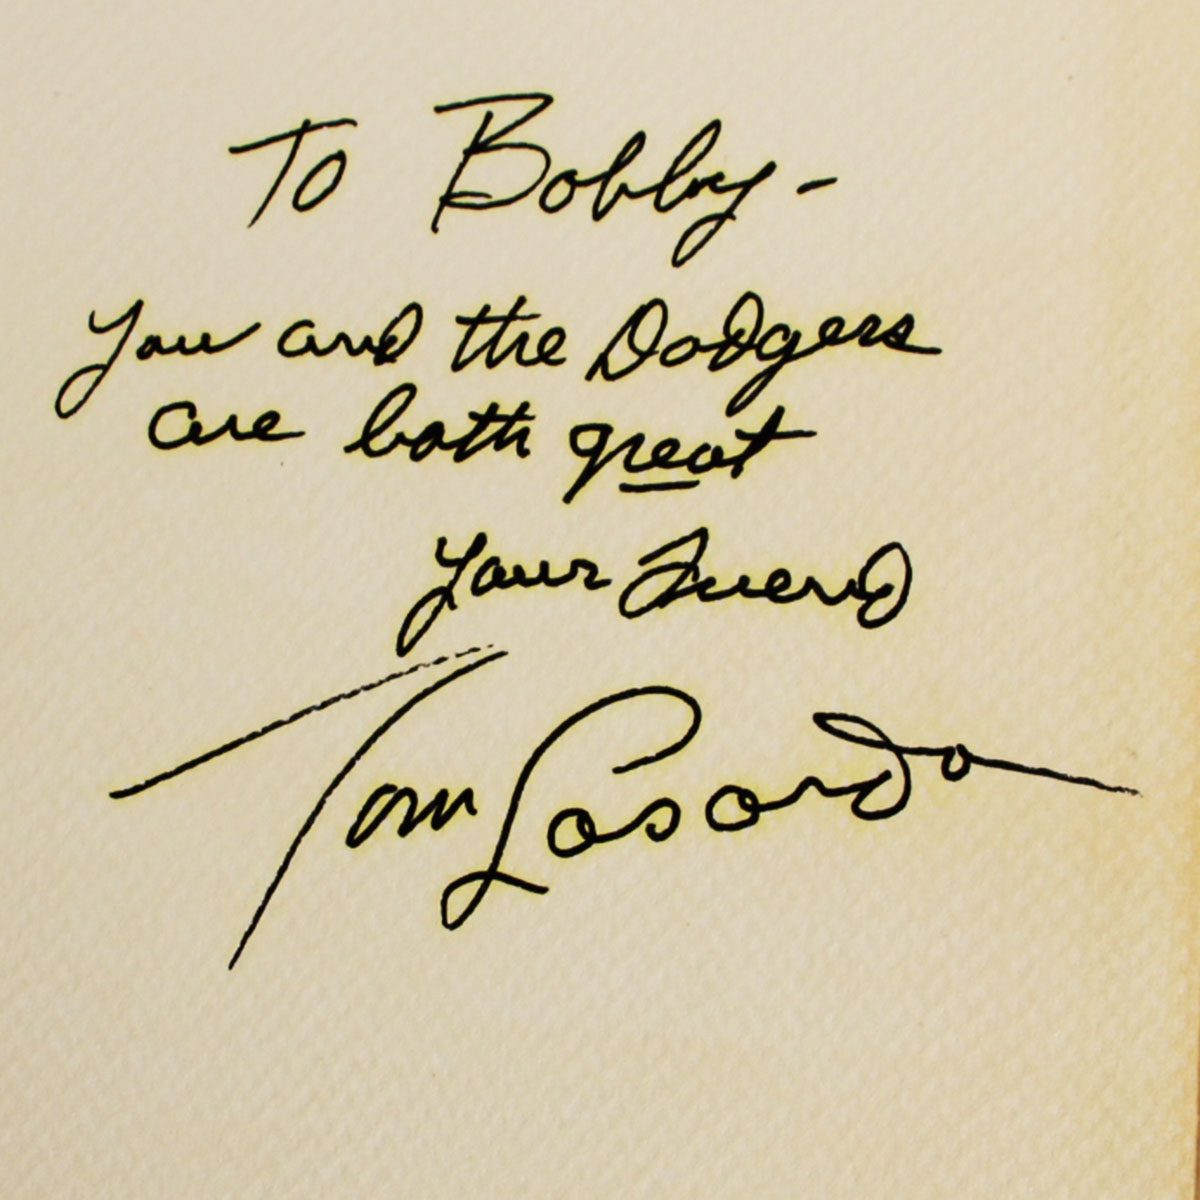 To Bobby -
You and the Dodgers
are both great
Your Friend
Tom Lasorda